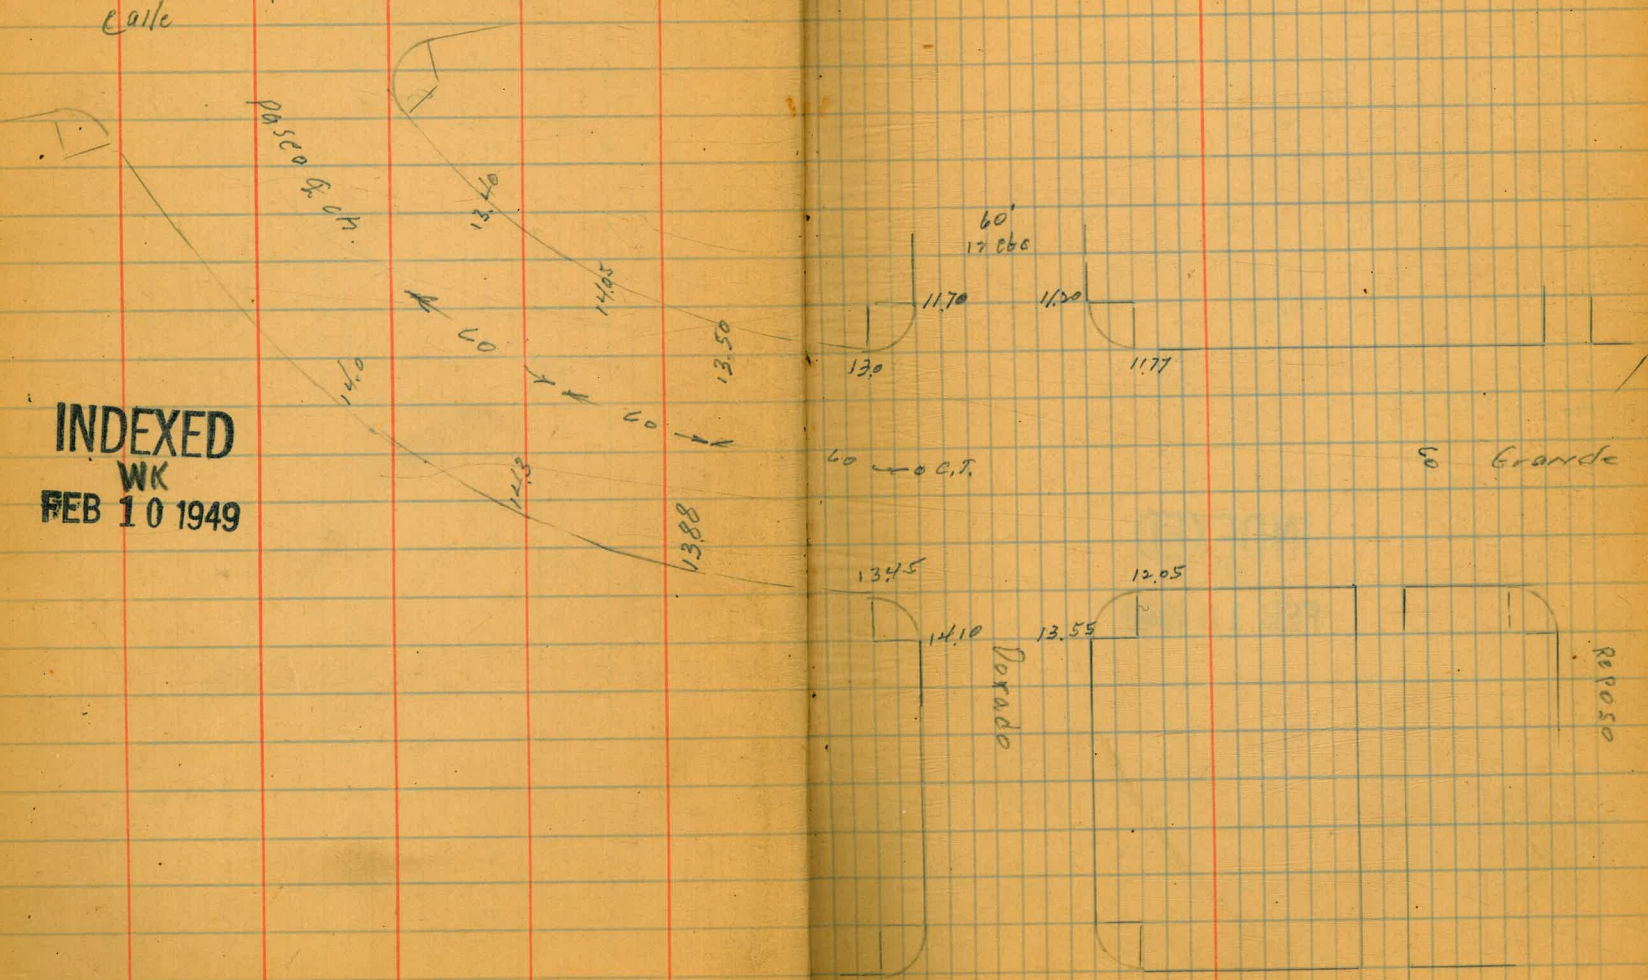 Calle
Paseo
13.40
14.05
13.50
14.0
14.3
13.88
60
60
INDEXED
WK
FEB 10 1949
60'
11.70
11.30
13.0
11.77
60
C.T.
60
Grande
13.45
12.05
14.10
13.55
Dorado
Reposo